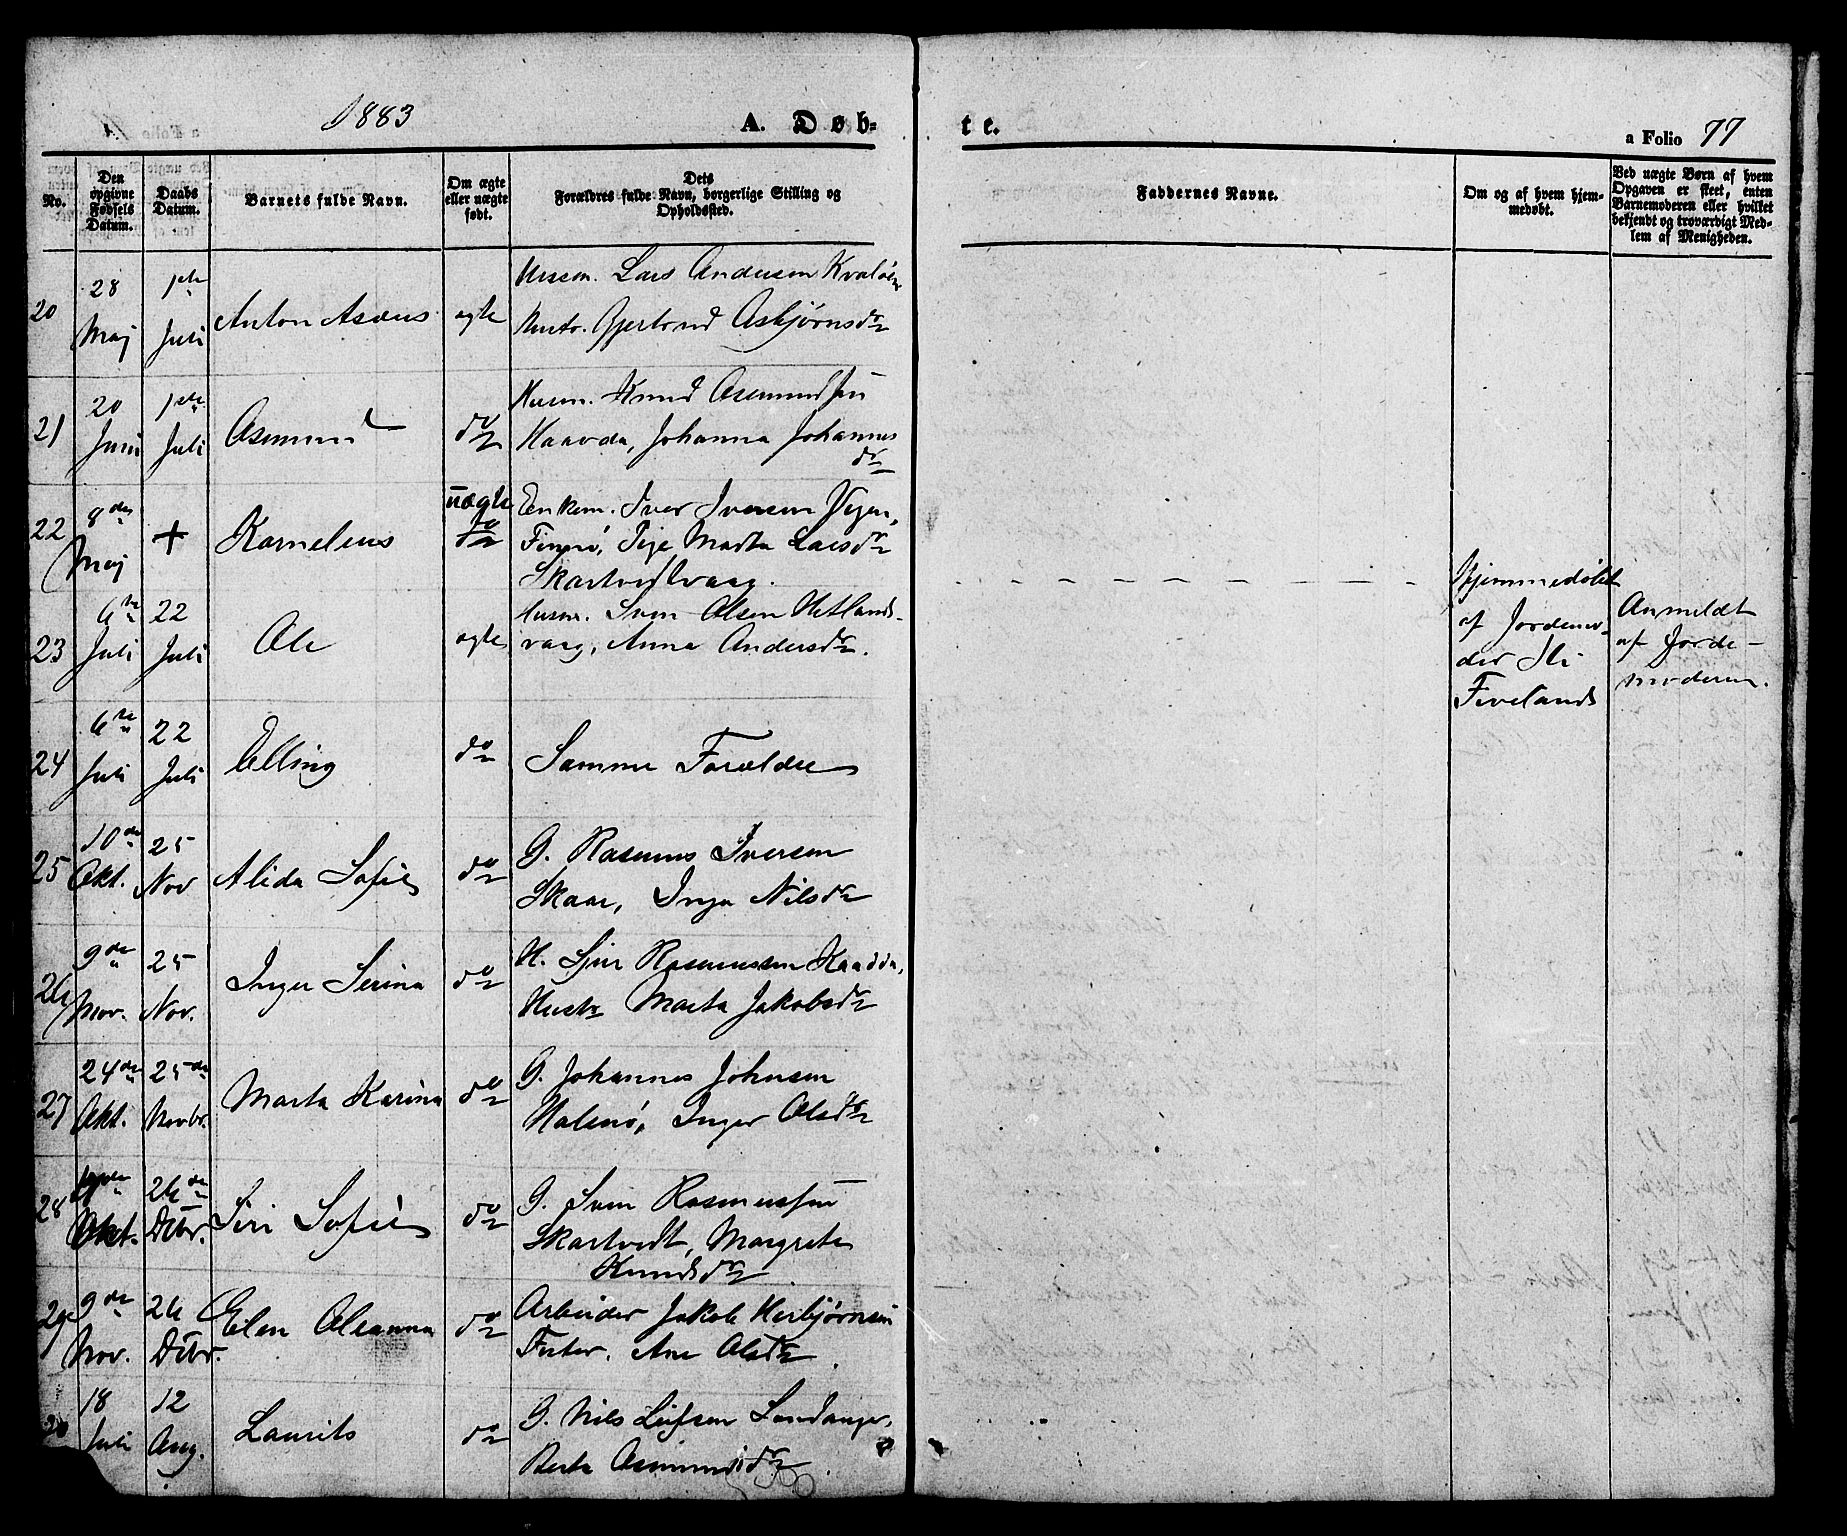 1883
A. Døb-
te.
a Folio 77
No.
Den opgivne Fødsels Datum.
Daabs Datum.
Barnets fulde Navn.
Om ægte eller uægte født.
Dets Forældres fulde Navn, borgerlige Stilling og Opholdssted.
Faddernes Navne.
Om og af hvem hjemmedøbt.
Ved uægte Børn af hvem Opgaven er skeet, enten Barnemoderen eller hvilket bekjendt og troværdigt Medlem af Menigheden.
20
28 Maj
1ste Juli
Anton Aseus
ægte
Husm. Lars Andersen Kvaløen
Hustr. Gjertrud Asbjørnsdr
21
20 Juni
1ste Juli
Asmund
do
Husm. Knud Asmundsen
Haavda, Johanna Johannes
dr
22
8de Maj
+
Kornelius
uægte
do
Enkem. Iver Iversen
Finnø, Pige Marta Larsdr
Skartvedtvaag.
Hjemmedøbt
af Jordemo-
der Siri
Fivelands
Anmeldt
af Jorde-
moderen.
23
6te Juli
22 Juli
Ole
ægte
Husm. Sven Olsen Hetlands-
vaag, Anna Andersdr.
24
6te Juli
22 Juli
Elling
do
Samme Forældre
25
10de Okt.
25 Nov
Alida Sofie
do
G. Rasmus Iversen
Skaar, Inga Nilsdr
26
9de Nov.
25 Nov.
Inger Serina
do
H. Sjur Rasmussen Haavda,
Hustr Marta Jakobsdr
27
24de Okt.
25de Novbr.
Marta Karina
do
G. Johannes Johnsen
Halsnø, Inger Olsdr
28
Okt.
26de Dcbr.
Siri Sofie
do
G. Sven Rasmussen
Skartvedt, Margrete
Knudsdr
29
9de Nov.
26 Dcbr.
Elen Oleanna
do
Arbeider Jakob Herbjørnsen
Fister. Ane Olsdr
18 Juli
12 Aug.
Laurits
do
G. Nils Leifsen Landanger,
Berta Asmundsdr